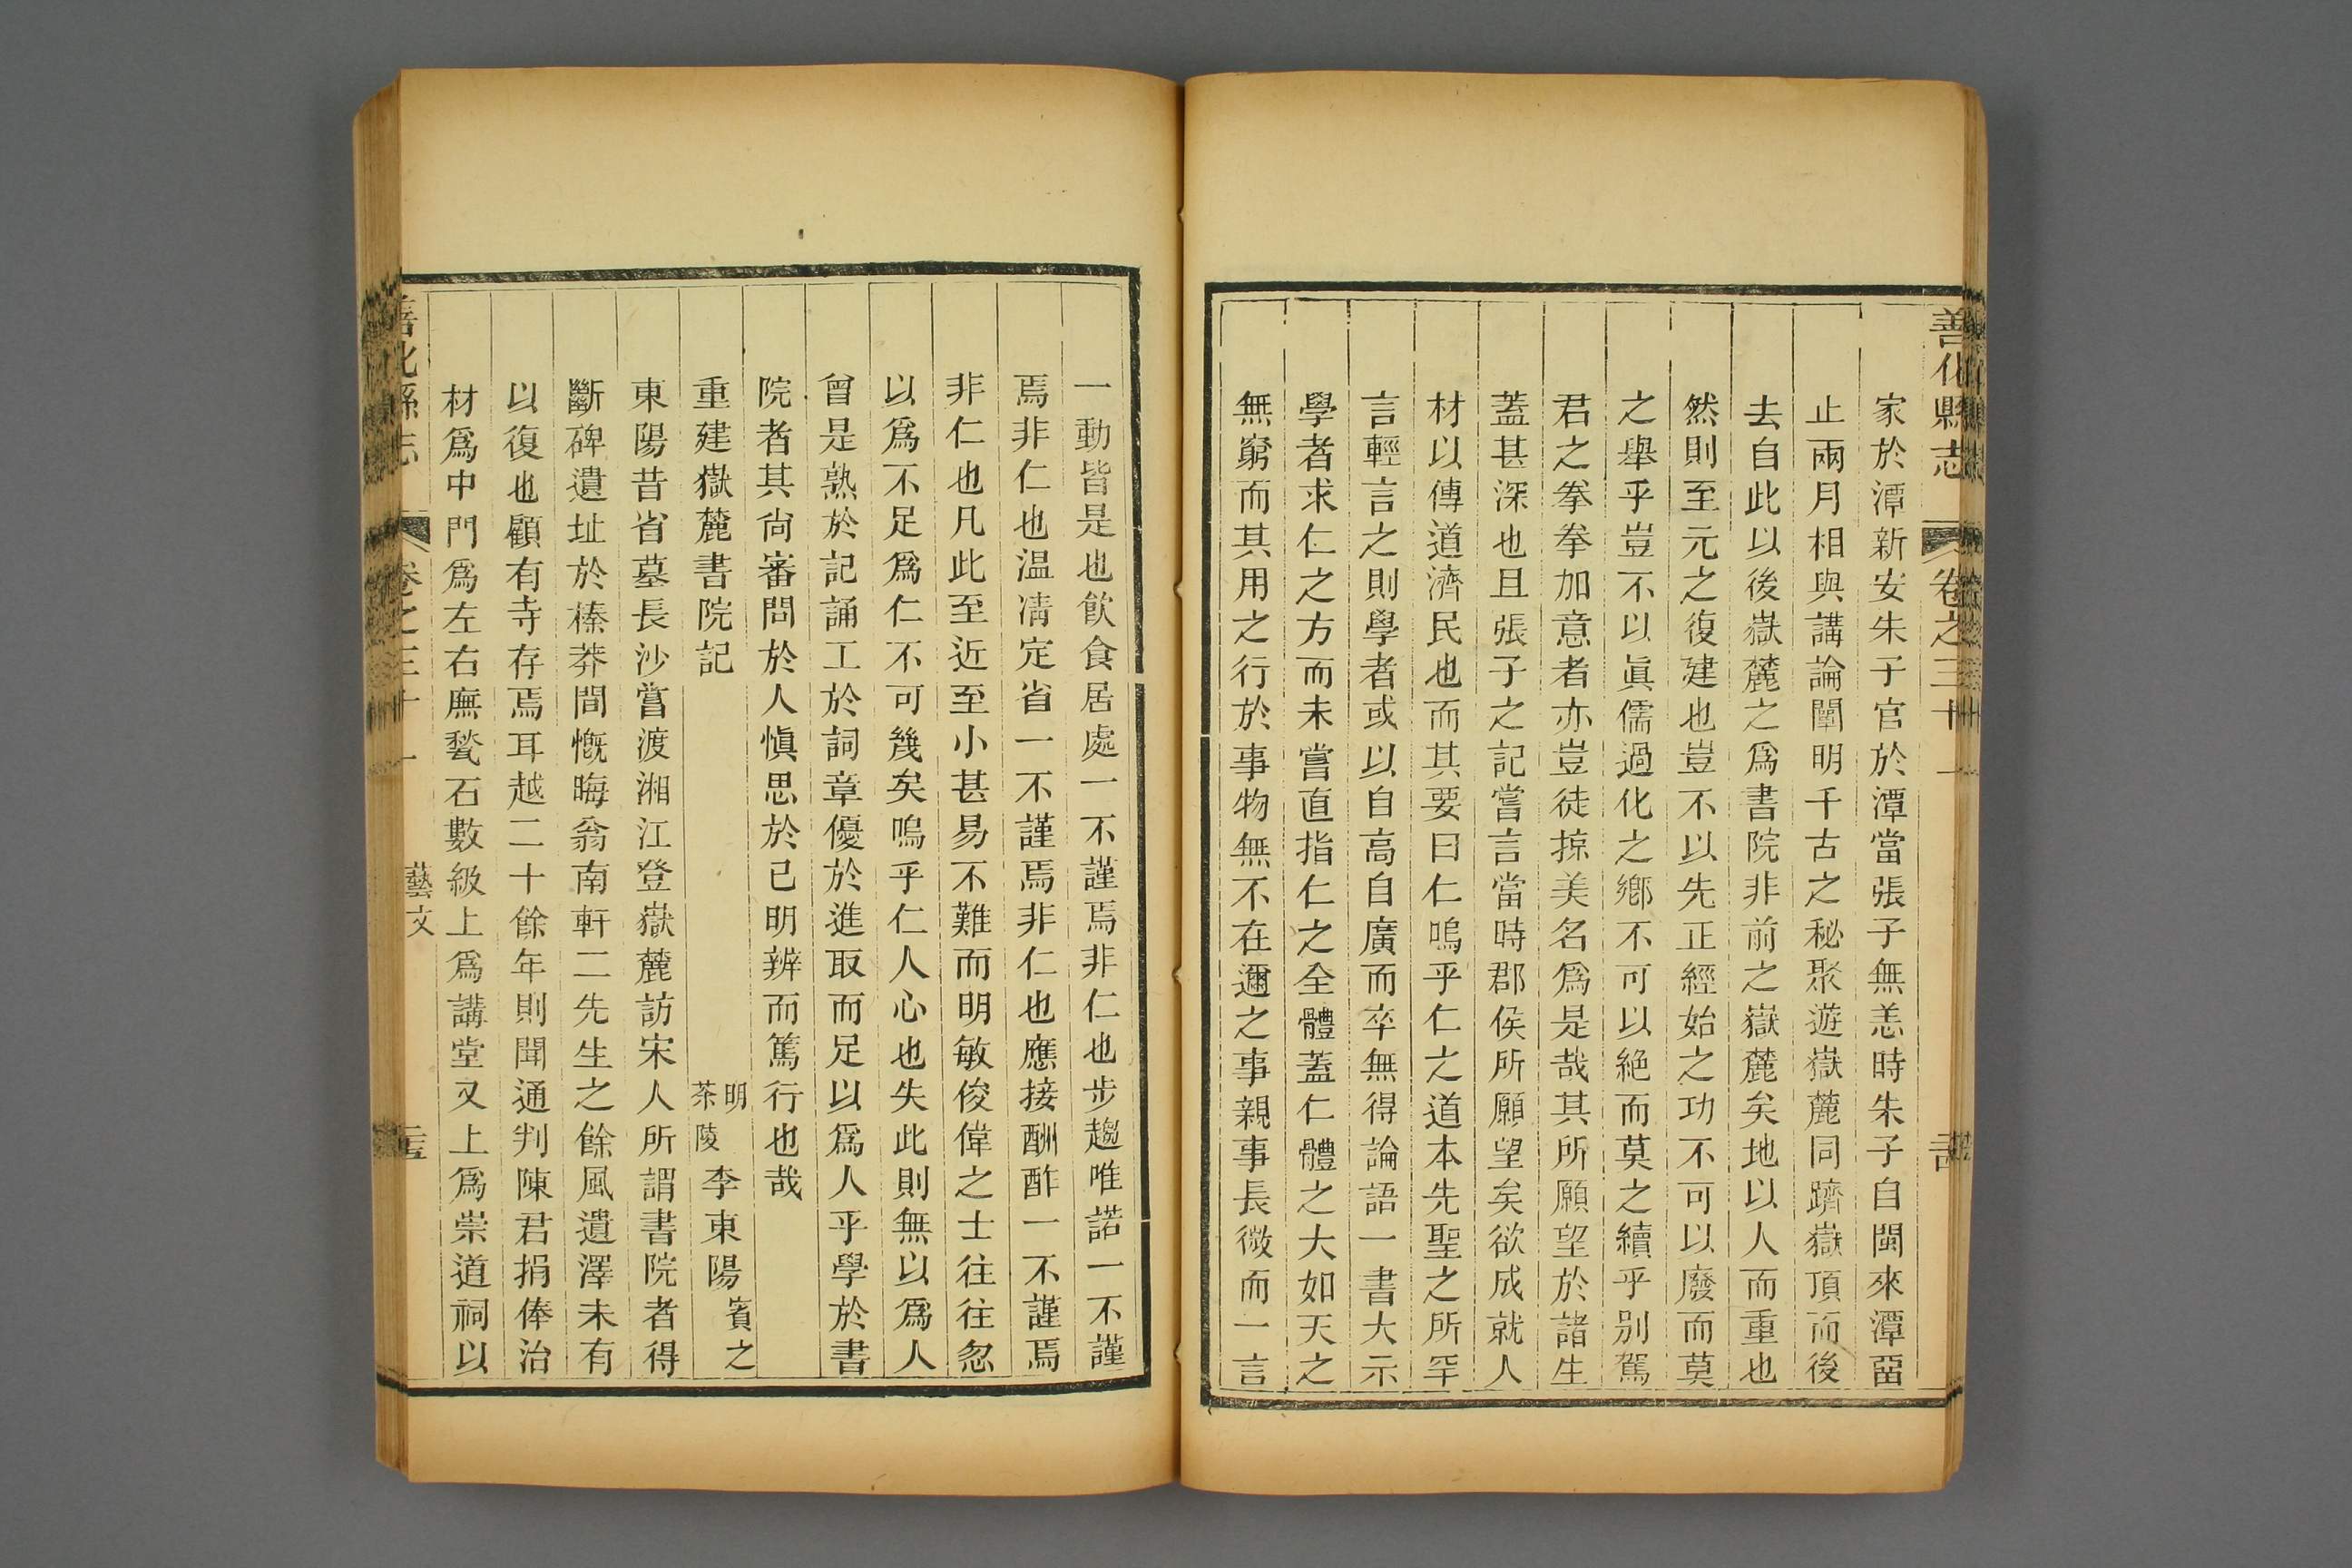 善化縣志
卷之三十一
家於潭新安朱子官於潭當張子無恙時朱子自閩來潭畱
止兩月相與講論闡明千古之秘聚遊嶽麓同躋嶽頂而後
去自此以後嶽麓之爲書院非前之嶽麓矣地以人而重也
然則至元之復建也豈不以先正經始之功不可以廢而莫
之舉乎豈不以眞儒過化之鄕不可以絶而莫之續乎别駕
君之拳拳加意者亦豈徒掠美名爲是哉其所願望於諸生
葢甚深也且張子之記嘗言當時郡侯所願望矣欲成就人
材以傳道濟民也而其要曰仁嗚乎仁之道本先聖之所罕
言輕言之則學者或以自高自廣而卒無得論語一書大示
學者求仁之方而未嘗直指仁之全體葢仁體之大如天之
無窮而其用之行於事物無不在邇之事親事長微而一言
一動皆是也飮食居處一不謹焉非仁也步趨唯諾一不謹
焉非仁也温凊定省一不謹焉非仁也應接酬酢一不謹焉
非仁也凡此至近至小甚易不難而明敏俊偉之士往往忽
以爲不足爲仁不可幾矣嗚乎仁人心也失此則無以爲人
曾是熟於記誦工於詞章優於進取而足以爲人乎學於書
院者其尙審問於人愼思於己明辨而篤行也哉
重建嶽麓書院記 明茶陵李東陽賓之
東陽昔省墓長沙嘗渡湘江登嶽麓訪宋人所謂書院者得
斷碑遺址於榛莽間慨晦翁南軒二先生之餘風遺澤未有
以復也顧有寺存焉耳越二十餘年則聞通判陳君捐俸治
材爲中門爲左右廡甃石數級上爲講堂又上爲崇道祠以
善化縣志
卷之三十一
藝文